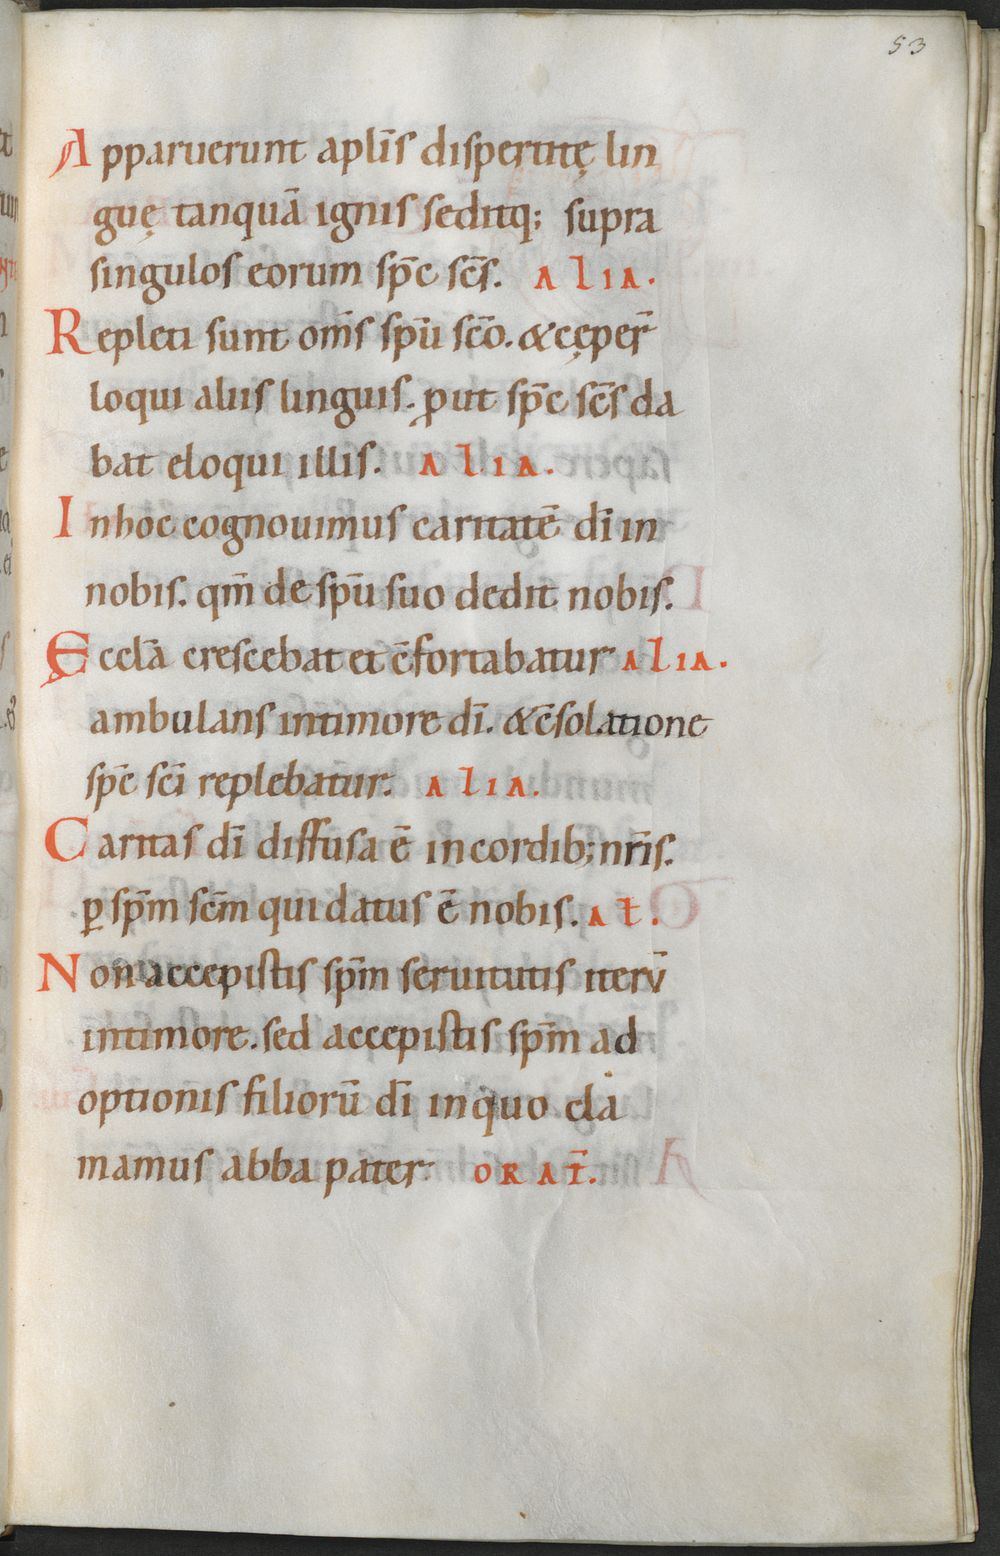 53
Apparuerunt apl̄is dispertitę lin
guę tanquā ignis seditq; supra
singulos eorum sp̄c sc̄s. ALIA.
Repleti sunt om̄s sp̄u sc̄o. & cęper̄
loqui aliis linguis. ꝓut sp̄c sc̄s da
bat eloqui illis. ALIA.
Inhoc cognouimus caritatē dī in
nobis. qm̄ de sp̄u suo dedit nobis.
Eccl̄a crescebat et c̄fortabatur ALIA.
ambulans intimore dī. & c̄solatione
sp̄c sc̄i replebatur. ALIA.
Caritas dī diffusa ē incordib; nr̄is.
ꝑ sp̄m sc̄m qui datus ē nobis. Aꝉ.
Non accepistis sp̄m seruitutis iterū
intimore. sed accepistis sp̄m ad
optionis filiorū dī inquo cla
mamus abba pater ORAT̄.